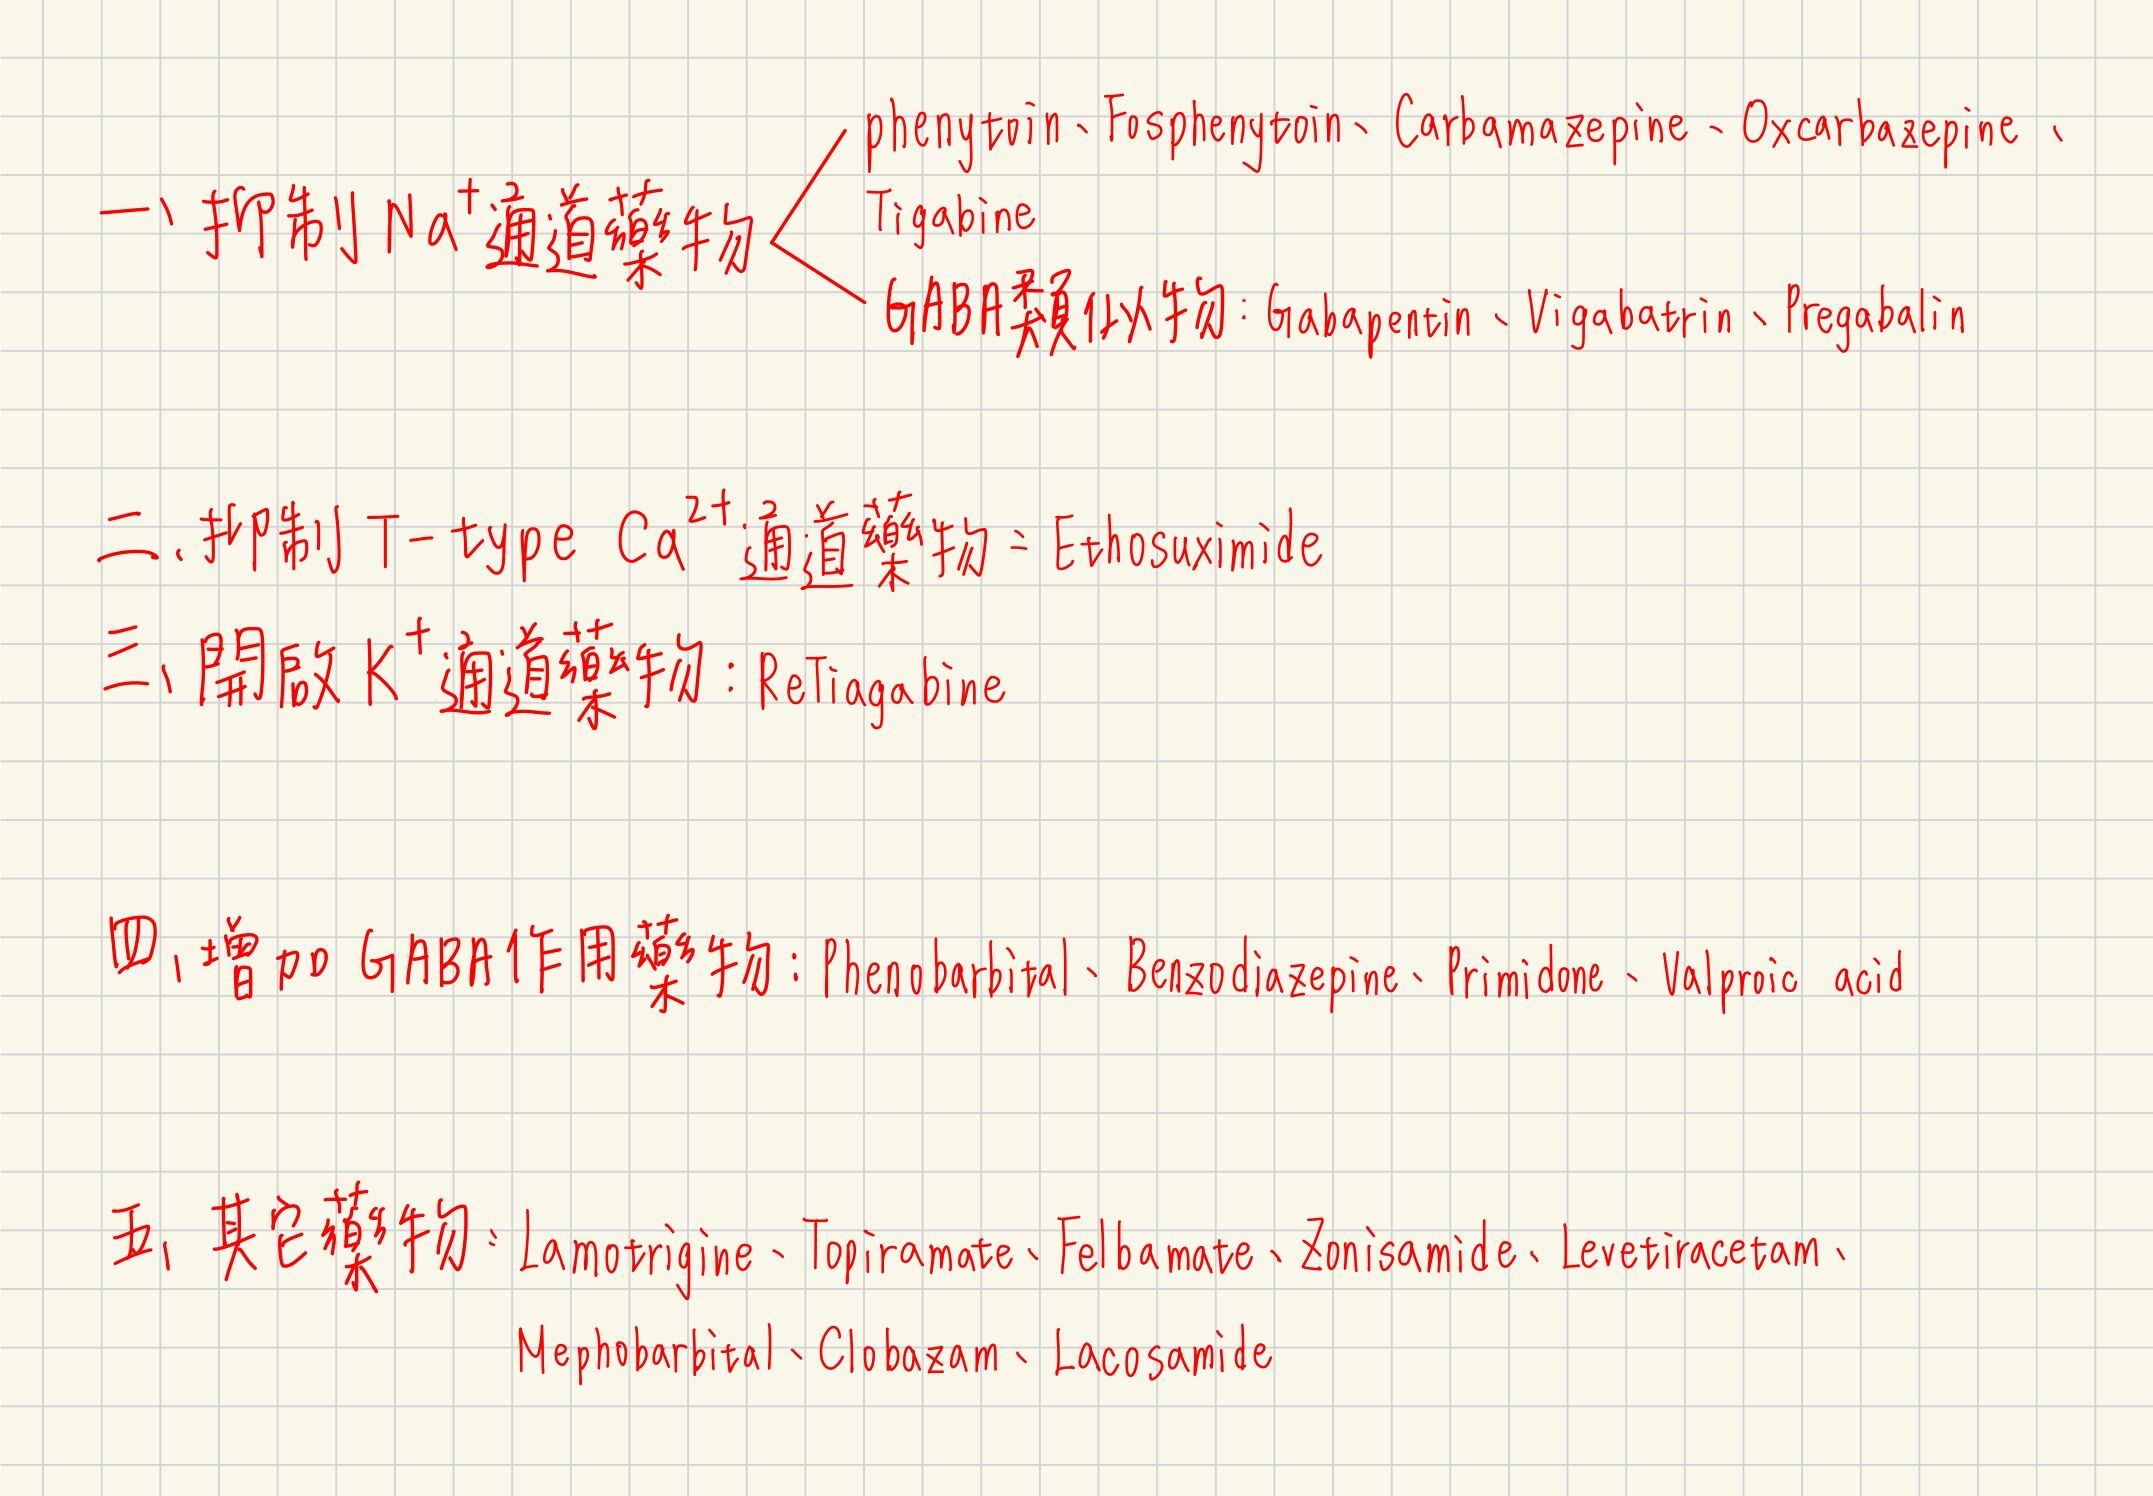 phenytoin、Fosphenytoin、Carbamazepine、Oxcarbazepine、
Tigabine
一、抑制Na⁺通道藥物
GABA類似物:Gabapentin、Vigabatrin、Pregabalin
二、抑制T-type Ca²⁺通道藥物:Ethosuximide
三、開啟K⁺通道藥物:ReTiagabine
四、增加GABA作用藥物:Phenobarbital、Benzodiazepine、Primidone、Valproic acid
五、其它藥物:Lamotrigine、Topiramate、Felbamate、Zonisamide、Levetiracetam、
Mephobarbital、Clobazam、Lacosamide